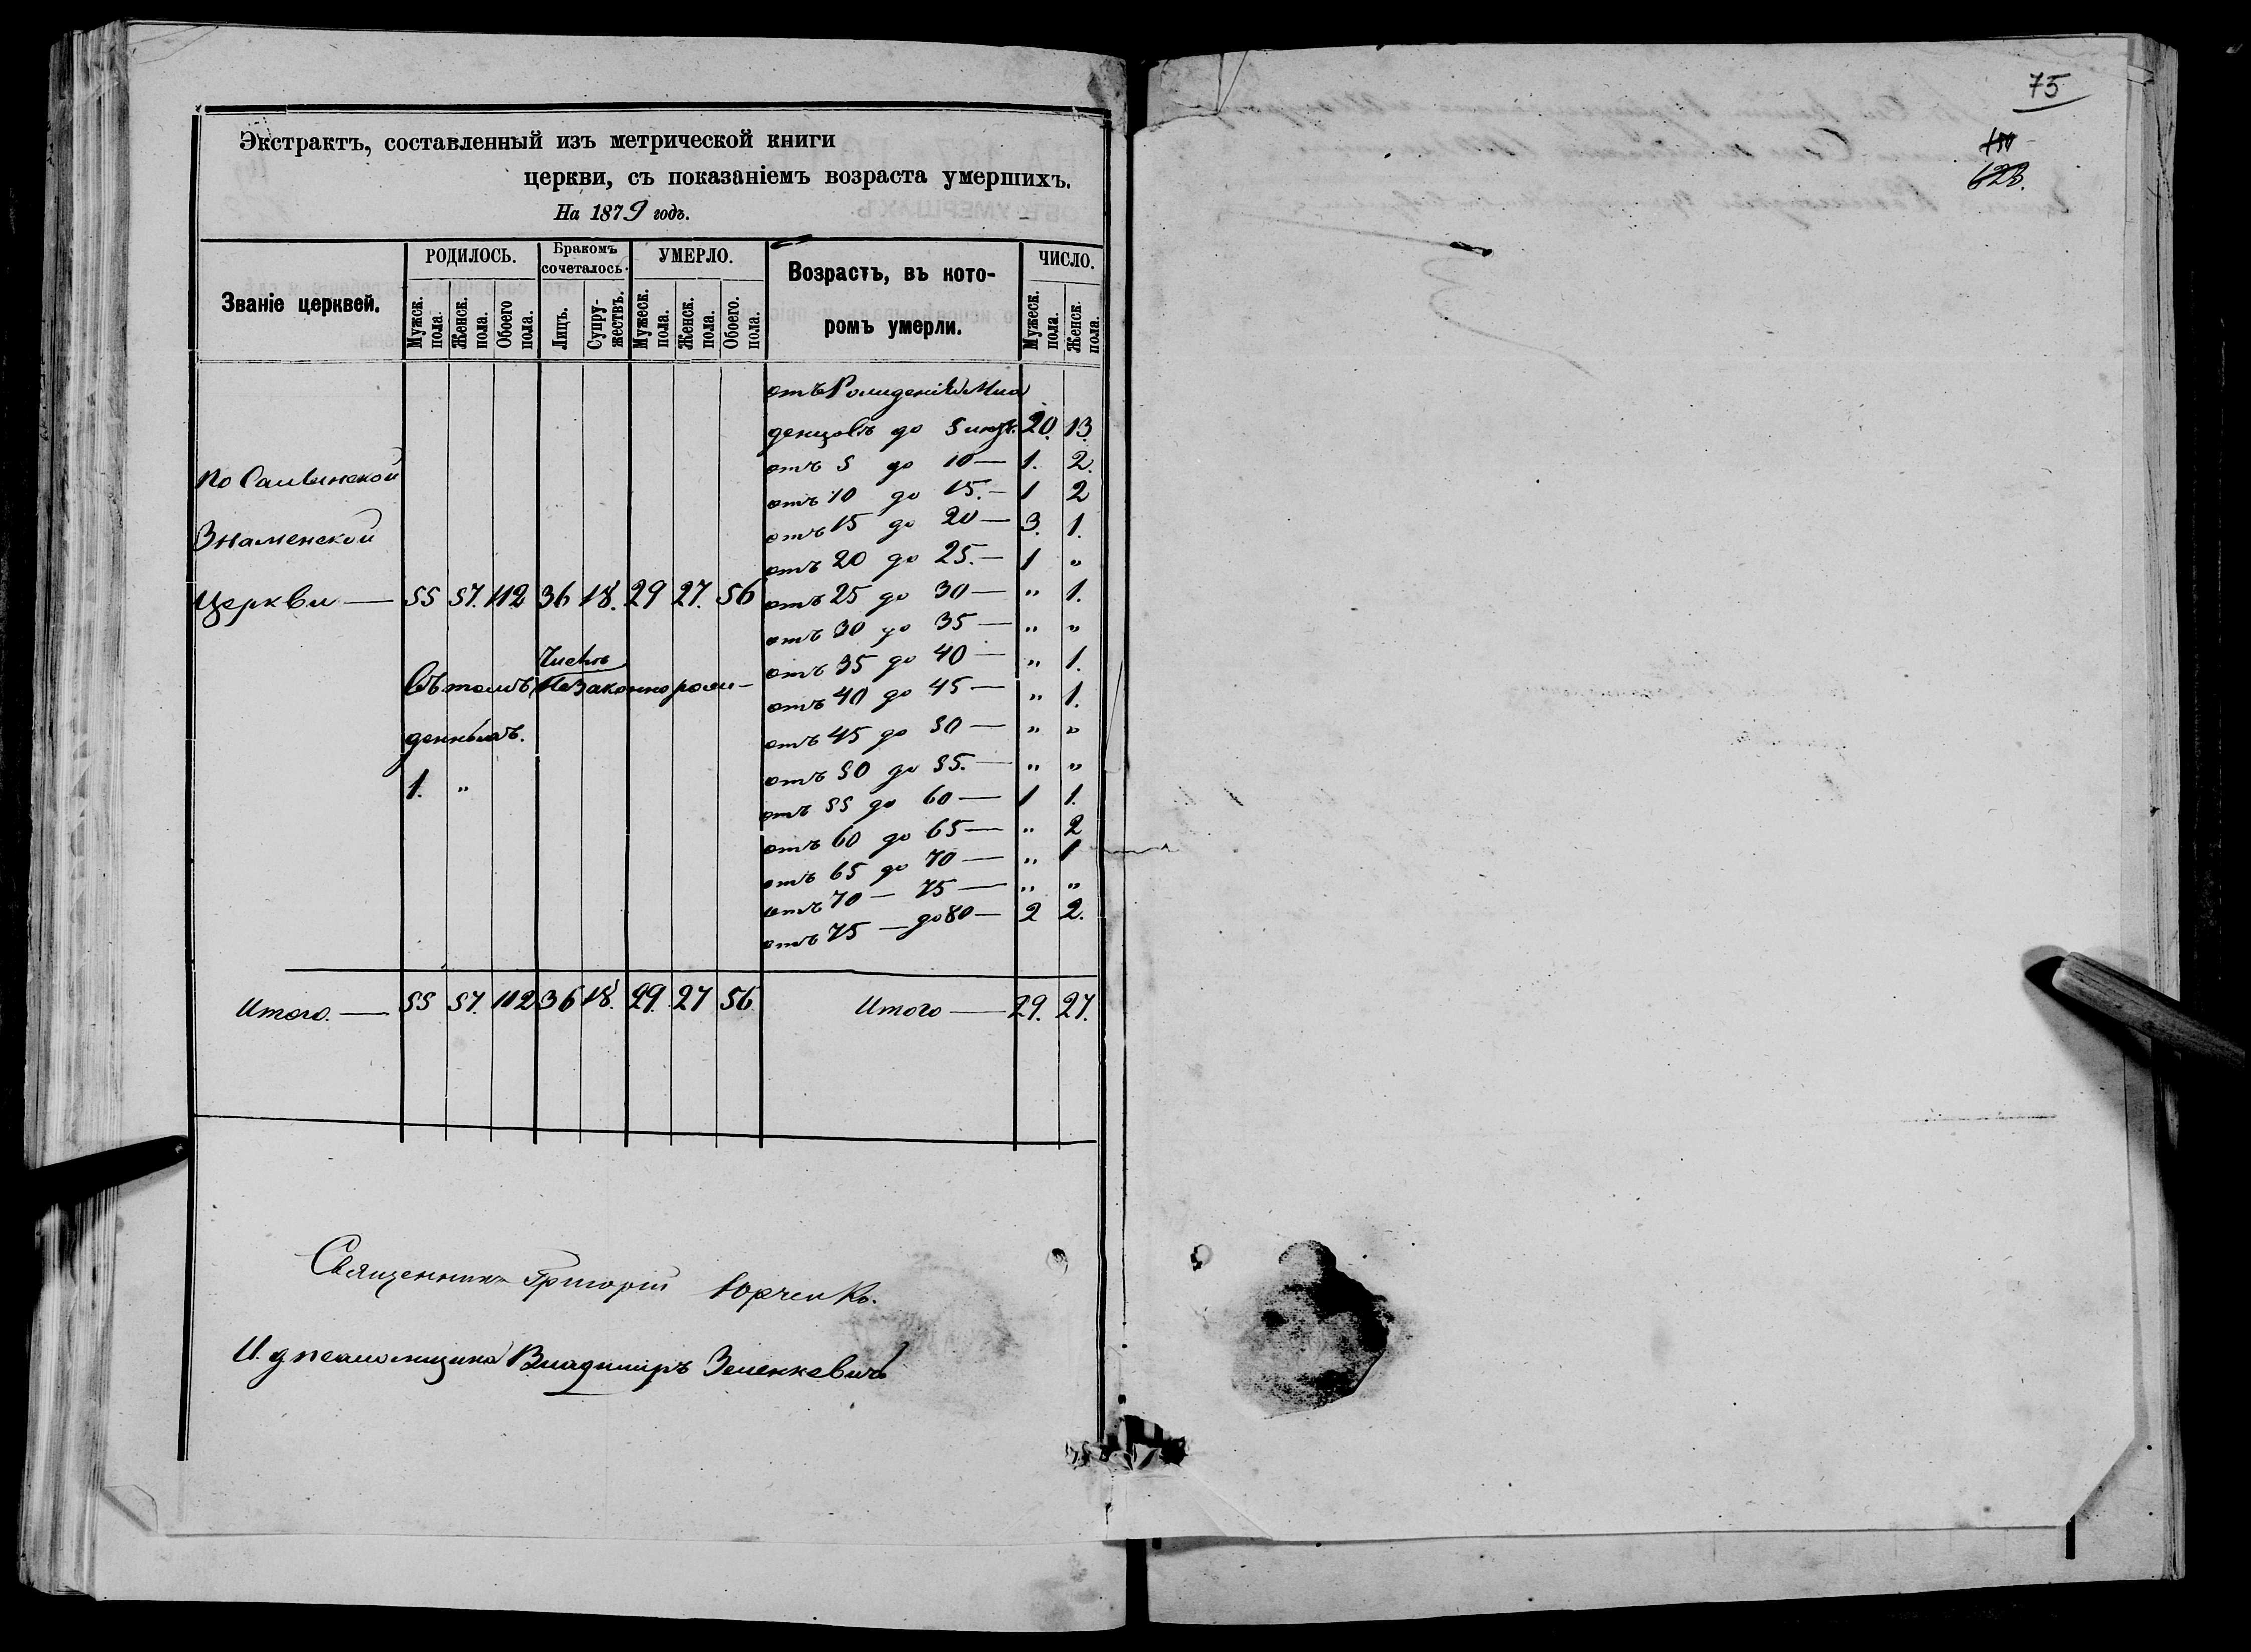 Экстрактъ, составленный изъ метрической книги
церкви, съ показаніемъ возраста умершихъ.
На 1879 годъ.
Званіе церквей.
РОДИЛОСЬ.
Мужск. пола.
Женск. пола.
Обоего пола.
Бракомъ сочеталось.
Лицъ.
Супружествъ.
УМЕРЛО.
Мужеск. пола.
Женск. пола.
Обоего. пола.
Возрастъ, въ кото-
ромъ умерли.
ЧИСЛО.
Мужеск. пола.
Женск. пола.
отъ Рожденія Мла
денцовъ до 5 лѣтъ. 20. 13.
отъ 5 до 10 — 1. 2.
По
отъ 10 до 15. — 1 2
отъ 15 до 20 — 3. 1.
Знаменской
отъ 20 до 25. — 1 "
Церкви — 55 57. 112 36 18. 29 27. 56
отъ 25 до 30 — " 1.
отъ 30 до 35 — " "
Числѣ
отъ 35 до 40 — " 1.
Въ томъ Незаконнорож-
отъ 40 до 45 — " 1.
денныхъ.
отъ 45 до 50 — " "
отъ 50 до 55. — " "
1. "
отъ 55 до 60 — 1 1.
отъ 60 до 65 — " 2
отъ 65 до 70 — " 1
отъ 70 — 75 — " "
отъ 75 — до 80 — 2 2.
Итого. — 55 57. 112 36 18. 29. 27 56 Итого — 29. 27.
Священникъ Григорій Юрченко.
И. д псаломщика Владиміръ Зеленкевичъ
75
623.